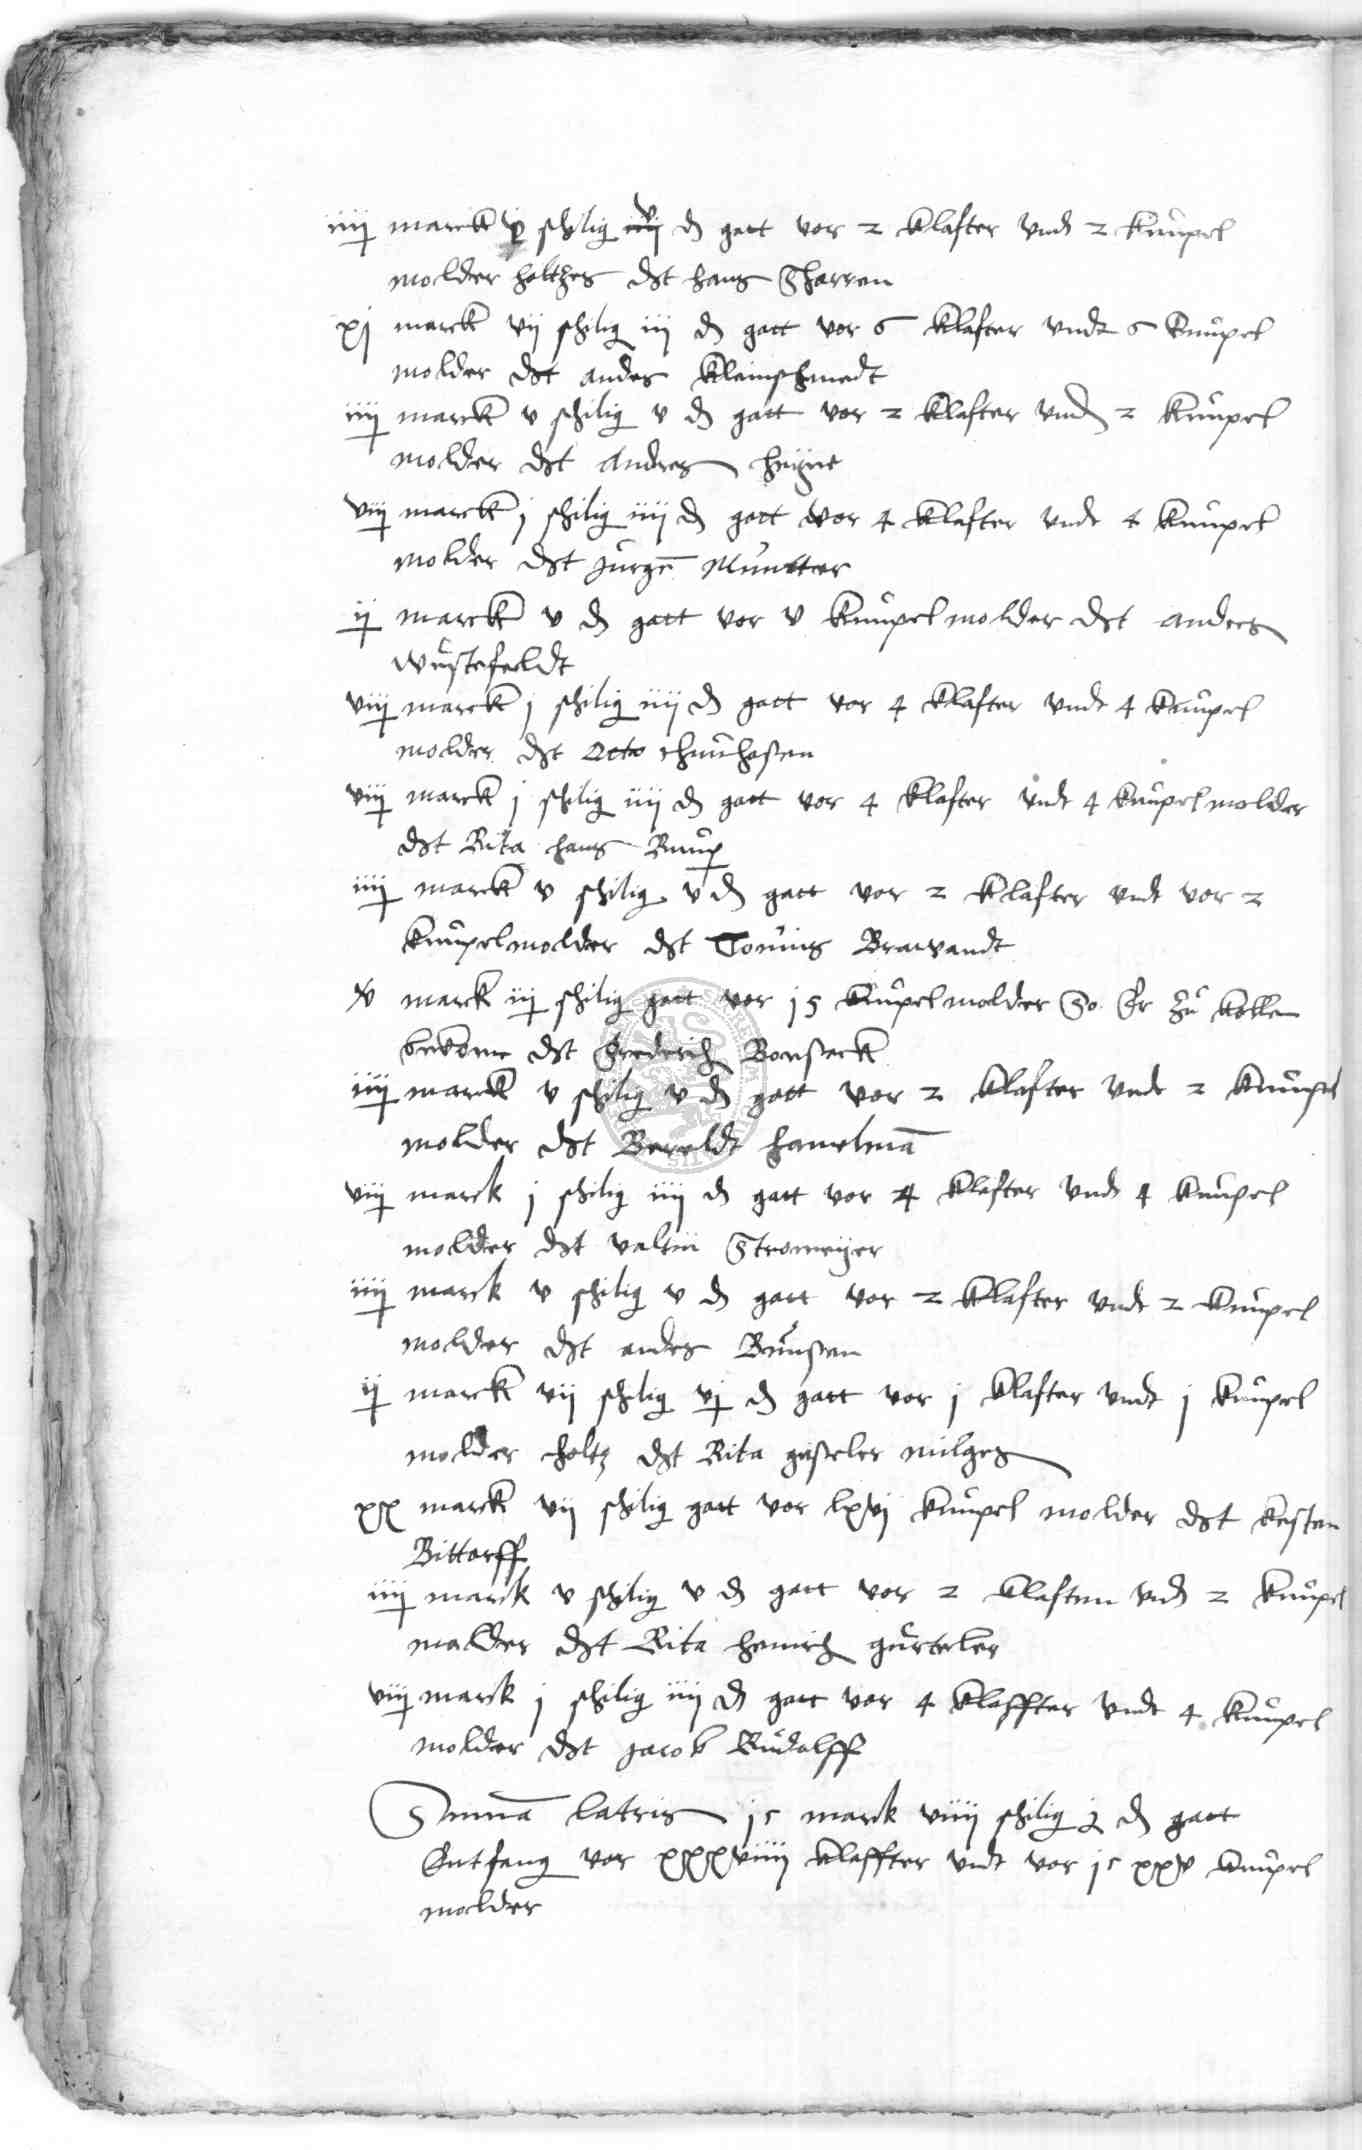 iiij marck v schilig v d gatt vor 2 klafter vnd 2 knuppel
molder holtzes dt hans Scharren
xj marck vij schilig iij d gatt vor 6 klafter vndt 6 knuppel
molder dt andes kleinschmedt
iiij marck v schilig v d gatt vor 2 klafter vnd 2 knuppel
molder dt andres heyne
viij marck j schilig iiij d gatt vor 4 klafter vndt 4 knuppel
molder dt Jurge Muntter
ij marck v d gatt vor v knuppel molder dt anders
wustefeldt
viij marck j schilig iiij d gatt vor 4 klafter vndt 4 knuppel
molder dt Otto
viij marck j schilig iiij d gatt vor 4 klafter vndt 4 knuppel molder
dt Rita hans
iiij marck v schilig v d gatt vor 2 klafter vndt vor 2
knuppelmolder dt Tonnis
marck iij schilig gatt vor 15 knuppel molder So Er zu kollen
dt frederich Bonsack
iiij marck v schilig v d gatt vor 2 klafter vndt 2 knuppel
molder dt Bereldt hamelma
viij marck j schilig iiij d gatt vor 4 klafter vnd 4 knuppel
molder dt valtin Stromeyer
iiij marck v schilig v d gatt vor 2 klafter vndt 2 knuppel
molder dt andres Bunsen
ij marck vij schilig vj d gatt vor j klafter vndt j knuppel
molder holtz dt Rita gisseler milges
xx marck vij schilig gatt vor lxvj knuppel molder dt kesten
Bittorff
iiij marck v schilig v d gatt vor 2 klaftern vnd 2 knuppel
malder dt Rita henrich gurteler
viij marck j schilig iiij d gatt vor 4 klaffter vndt 4 knuppel
molder dt Jacob Rudolff
Summa latris jc marck viiij schilig j d gatt
Entfang vor xxxviiij klaffter vndt vor jc xxv knuppel
molder